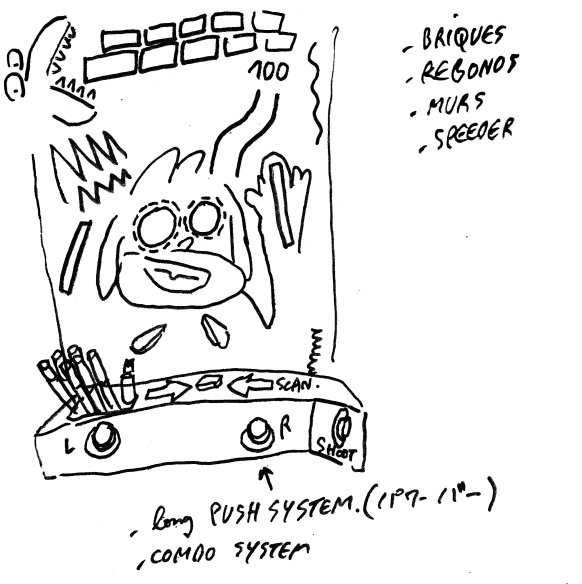 . BRIQUES
. REBONDS
. MURS
. SPEEDER
100
SCAN.
L
R
SHOOT
. long PUSH SYSTEM. (パワーバー)
. COMBO SYSTEM